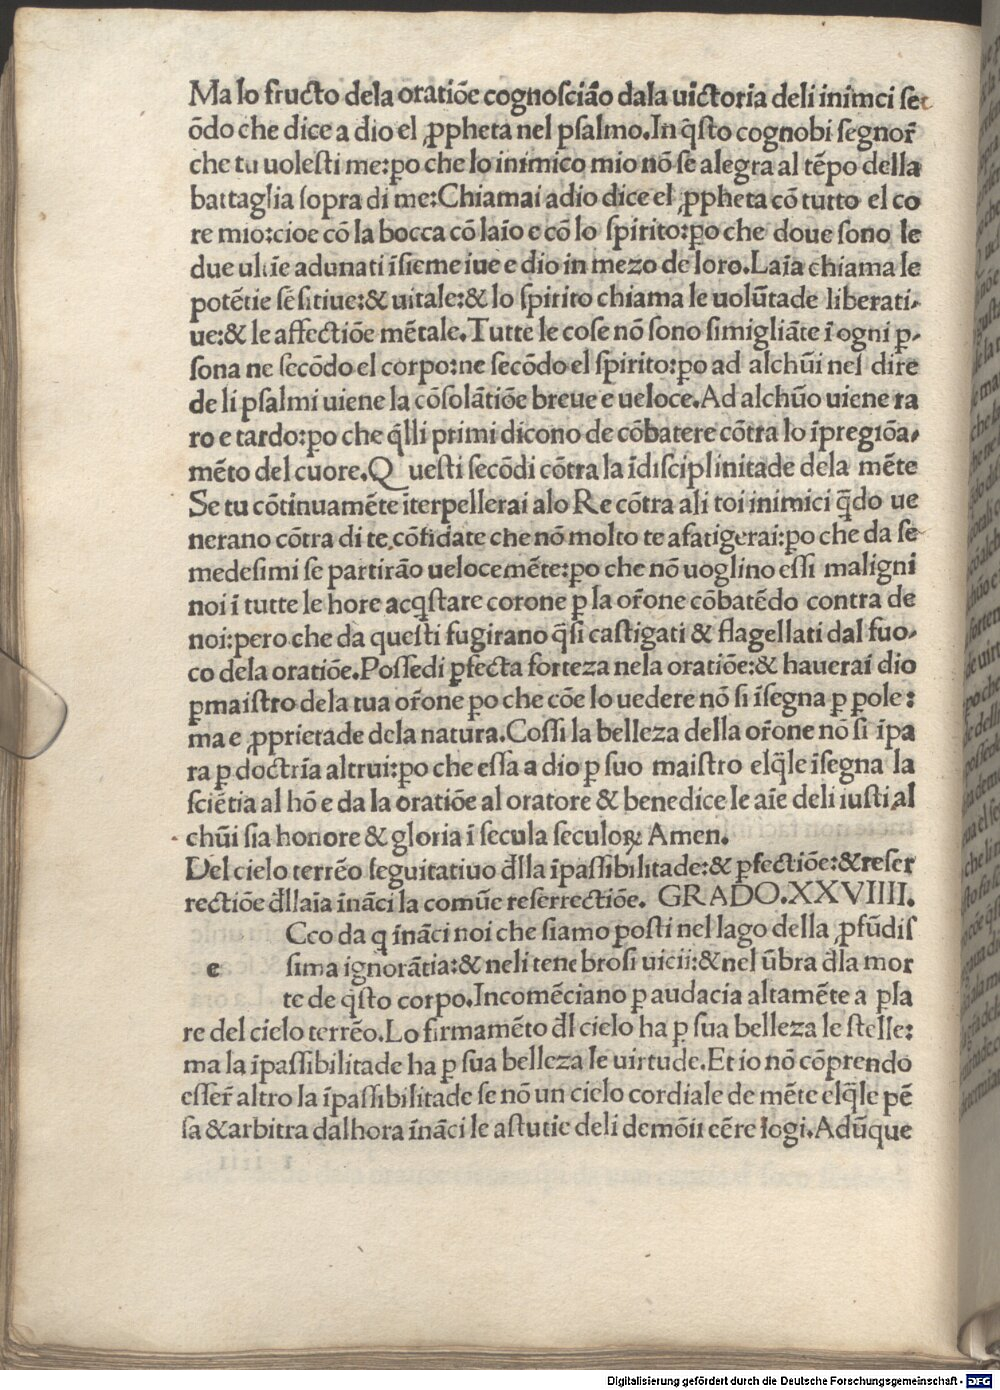 Ma lo fructo dela oratiõe cognoſciāo dala uictoria deli inimci ſe
õdo che dice a dio el ꝓpheta nel pſalmo.In q̃ſto cognobi ſegnor̃
che tu uoleſti me:ꝑo che lo inimico mio nõ ſe alegra al tẽpo della
battaglia ſopra di me:Chiamai adio dice el ꝓpheta cõ tutto el co
re mio:cioe cõ la bocca cõ laĩo e cõ lo ſpirito:ꝑo che doue ſono le
due ultĩe adunati ĩſieme iue e dio in mezo de loro.Laĩa chiama le
potẽtie ſẽſitiue:& uitale:& lo ſpirito chiama le uolũtade liberati⸗
ue:& le affectiõe mẽtale.Tutte le coſe nõ ſono ſimigliãte ĩ ogni ꝑ⸗
ſona ne ſecõdo el corpo:ne ſecõdo el ſpirito:ꝑo ad alchũi nel dire
de li pſalmi uiene la cõſolãtiõe breue e ueloce.Ad alchũo uiene ra
ro e tardo:ꝑo che q̃lli primi dicono de cõbatere cõtra lo ĩpregiõa⸗
mẽto del cuore.Q ueſti ſecõdi cõtra la ĩdiſciplinitade dela mẽte
Se tu cõtinuamẽte ĩterpellerai alo Re cõtra ali toi inimici q̃do ue
nerano cõtra di te.cõfidate che nõ molto te afatigerai:ꝑo che da ſe
medeſimi ſe partirāo uelocemẽte:ꝑo che nõ uoglino eſſi maligni
noi ĩ tutte le hore acq̃ſtare corone ꝑ la or̃one cõbatẽdo contra de
noi:pero che da queſti fugirano q̃ſi caſtigati & flagellati dal fuo⸗
co dela oratiõe.Poſſedi ꝑfecta forteza nela oratiõe:& hauerai dio
ꝑmaiſtro dela tua or̃one ꝑo che cõe lo uedere nõ ſi ĩſegna ꝑ pole:
ma e ꝓprietade dela natura.Coſſi la belleza della or̃one nõ ſi ĩpa
ra ꝑ doctrĩa altrui:ꝑo che eſſa a dio ꝑ ſuo maiſtro elq̃le ĩſegna la
ſciẽtia al hõ e da la oratiõe al oratore & benedice le aĩe deli iuſti al
chũi ſia honore & gloria ĩ ſecula ſeculoꝝ Amen.
Del cielo terrẽo ſeguitatiuo đlla ĩpaſſibilitade:& ꝑfectiõe:& reſer
rectiõe đllaĩa ĩnãci la comũe reſerrectiõe. GRADO.XXVIIII.
Cco da q ĩnãci noi che ſiamo poſti nel lago della ꝓfũdiſ
e ſima ignorãtia:& neli tenebroſi uicii:& nel ũbra đla mor
te de q̃ſto corpo.Incomẽciano ꝑ audacia altamẽte a ꝑla
re del cielo terrẽo.Lo firmamẽto đl cielo ha ꝑ ſua belleza le ſtelle:
ma la ĩpaſſibilitade ha ꝑ ſua belleza le uirtude.Et io nõ cõprendo
eſſer̃ altro la ĩpaſſibilitade ſe nõ un cielo cordiale de mẽte elq̃le pẽ
ſa & arbitra dalhora ĩnãci le aſtutie deli demõii eẽre logi.Adũque
Digitalisierung gefördert durch die Deutsche Forschungsgemeinschaft - DFG